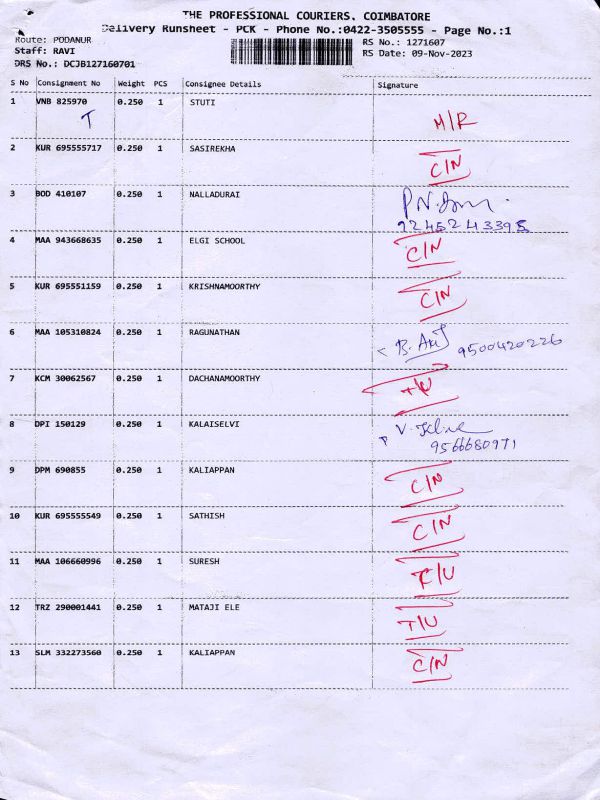 THE PROFESSIONAL COURIERS, COIMBATORE
Delivery Runsheet - PCK - Phone No.:0422-3505555 - Page No.:1
Route: PODANUR
RS No.: 1271607
Staff: RAVI
RS Date: 09-Nov-2023
DRS No.: DCJB127160701
S No Consignment No Weight PCS Consignee Details Signature
1 VNB 825970 0.250 1 STUTI
T M/R
2 KUR 695555717 0.250 1 SASIREKHA
C/N
3 BOD 410107 0.250 1 NALLADURAI
4 MAA 943668635 0.250 1 ELGI SCHOOL
C/N
5 KUR 695551159 0.250 1 KRISHNAMOORTHY
C/N
6 MAA 105310824 0.250 1 RAGUNATHAN
9500420226
7 KCM 30062567 0.250 1 DACHANAMOORTHY
T/U
8 DPI 150129 0.250 1 KALAISELVI
9566680971
9 DPM 690855 0.250 1 KALIAPPAN
C/N
10 KUR 695555549 0.250 1 SATHISH
C/N
11 MAA 106660996 0.250 1 SURESH
12 TRZ 290001441 0.250 1 MATAJI ELE
T/U
13 SLM 332273560 0.250 1 KALIAPPAN
C/N